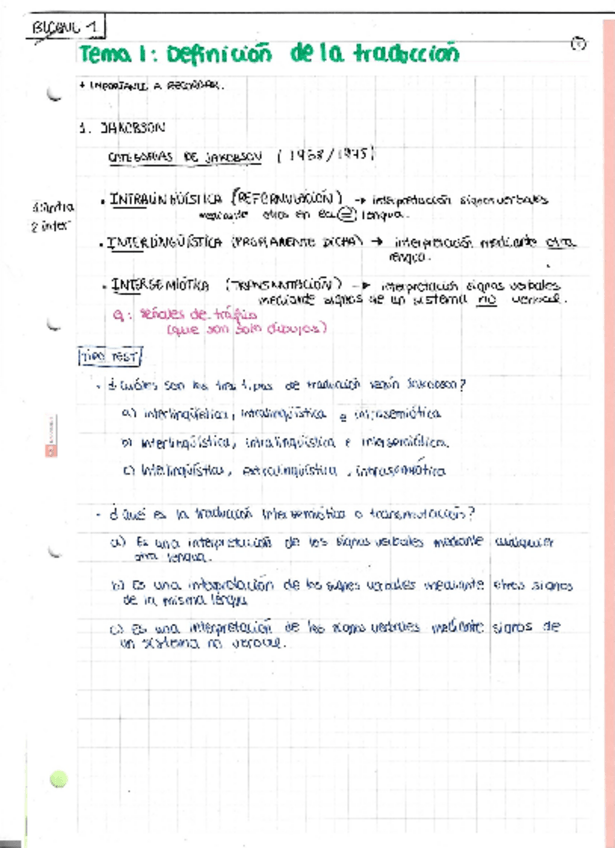 BLOQUE 1
Tema 1: Definición de la traducción
1
* IMPORTANTE A RECORDAR.
1. JAKOBSON
CATEGORÍAS DE JAKOBSON (1958/1975)
1 intra
2 inter
• INTRALINGÜÍSTICA (REFORMULACIÓN) → interpretación signos verbales
mediante otros en la (=) lengua.
• INTERLINGÜÍSTICA (PROPIAMENTE DICHA) → interpretación mediante otra
lengua.
• INTERSEMIÓTICA (TRANSMUTACIÓN) → interpretación signos verbales
mediante signos de un sistema no verbal.
señales de tráfico
(que son solo dibujos)
TIPO TEST
- ¿Cuáles son los tres tipos de traducción según Jakobson?
a) interlingüística, intralingüística e intrasemiótica
b) interlingüística, intralingüística e intersemiótica.
c) Interlingüística, extralingüística, intrasemiótica
- ¿Qué es la traducción intersemiótica o transmutación?
a) Es una interpretación de los signos verbales mediante cualquier
otra lengua.
b) Es una interpretación de los signos verbales mediante otros signos
de la misma lengua
c) Es una interpretación de los signos verbales mediante signos de
un sistema no verbal.